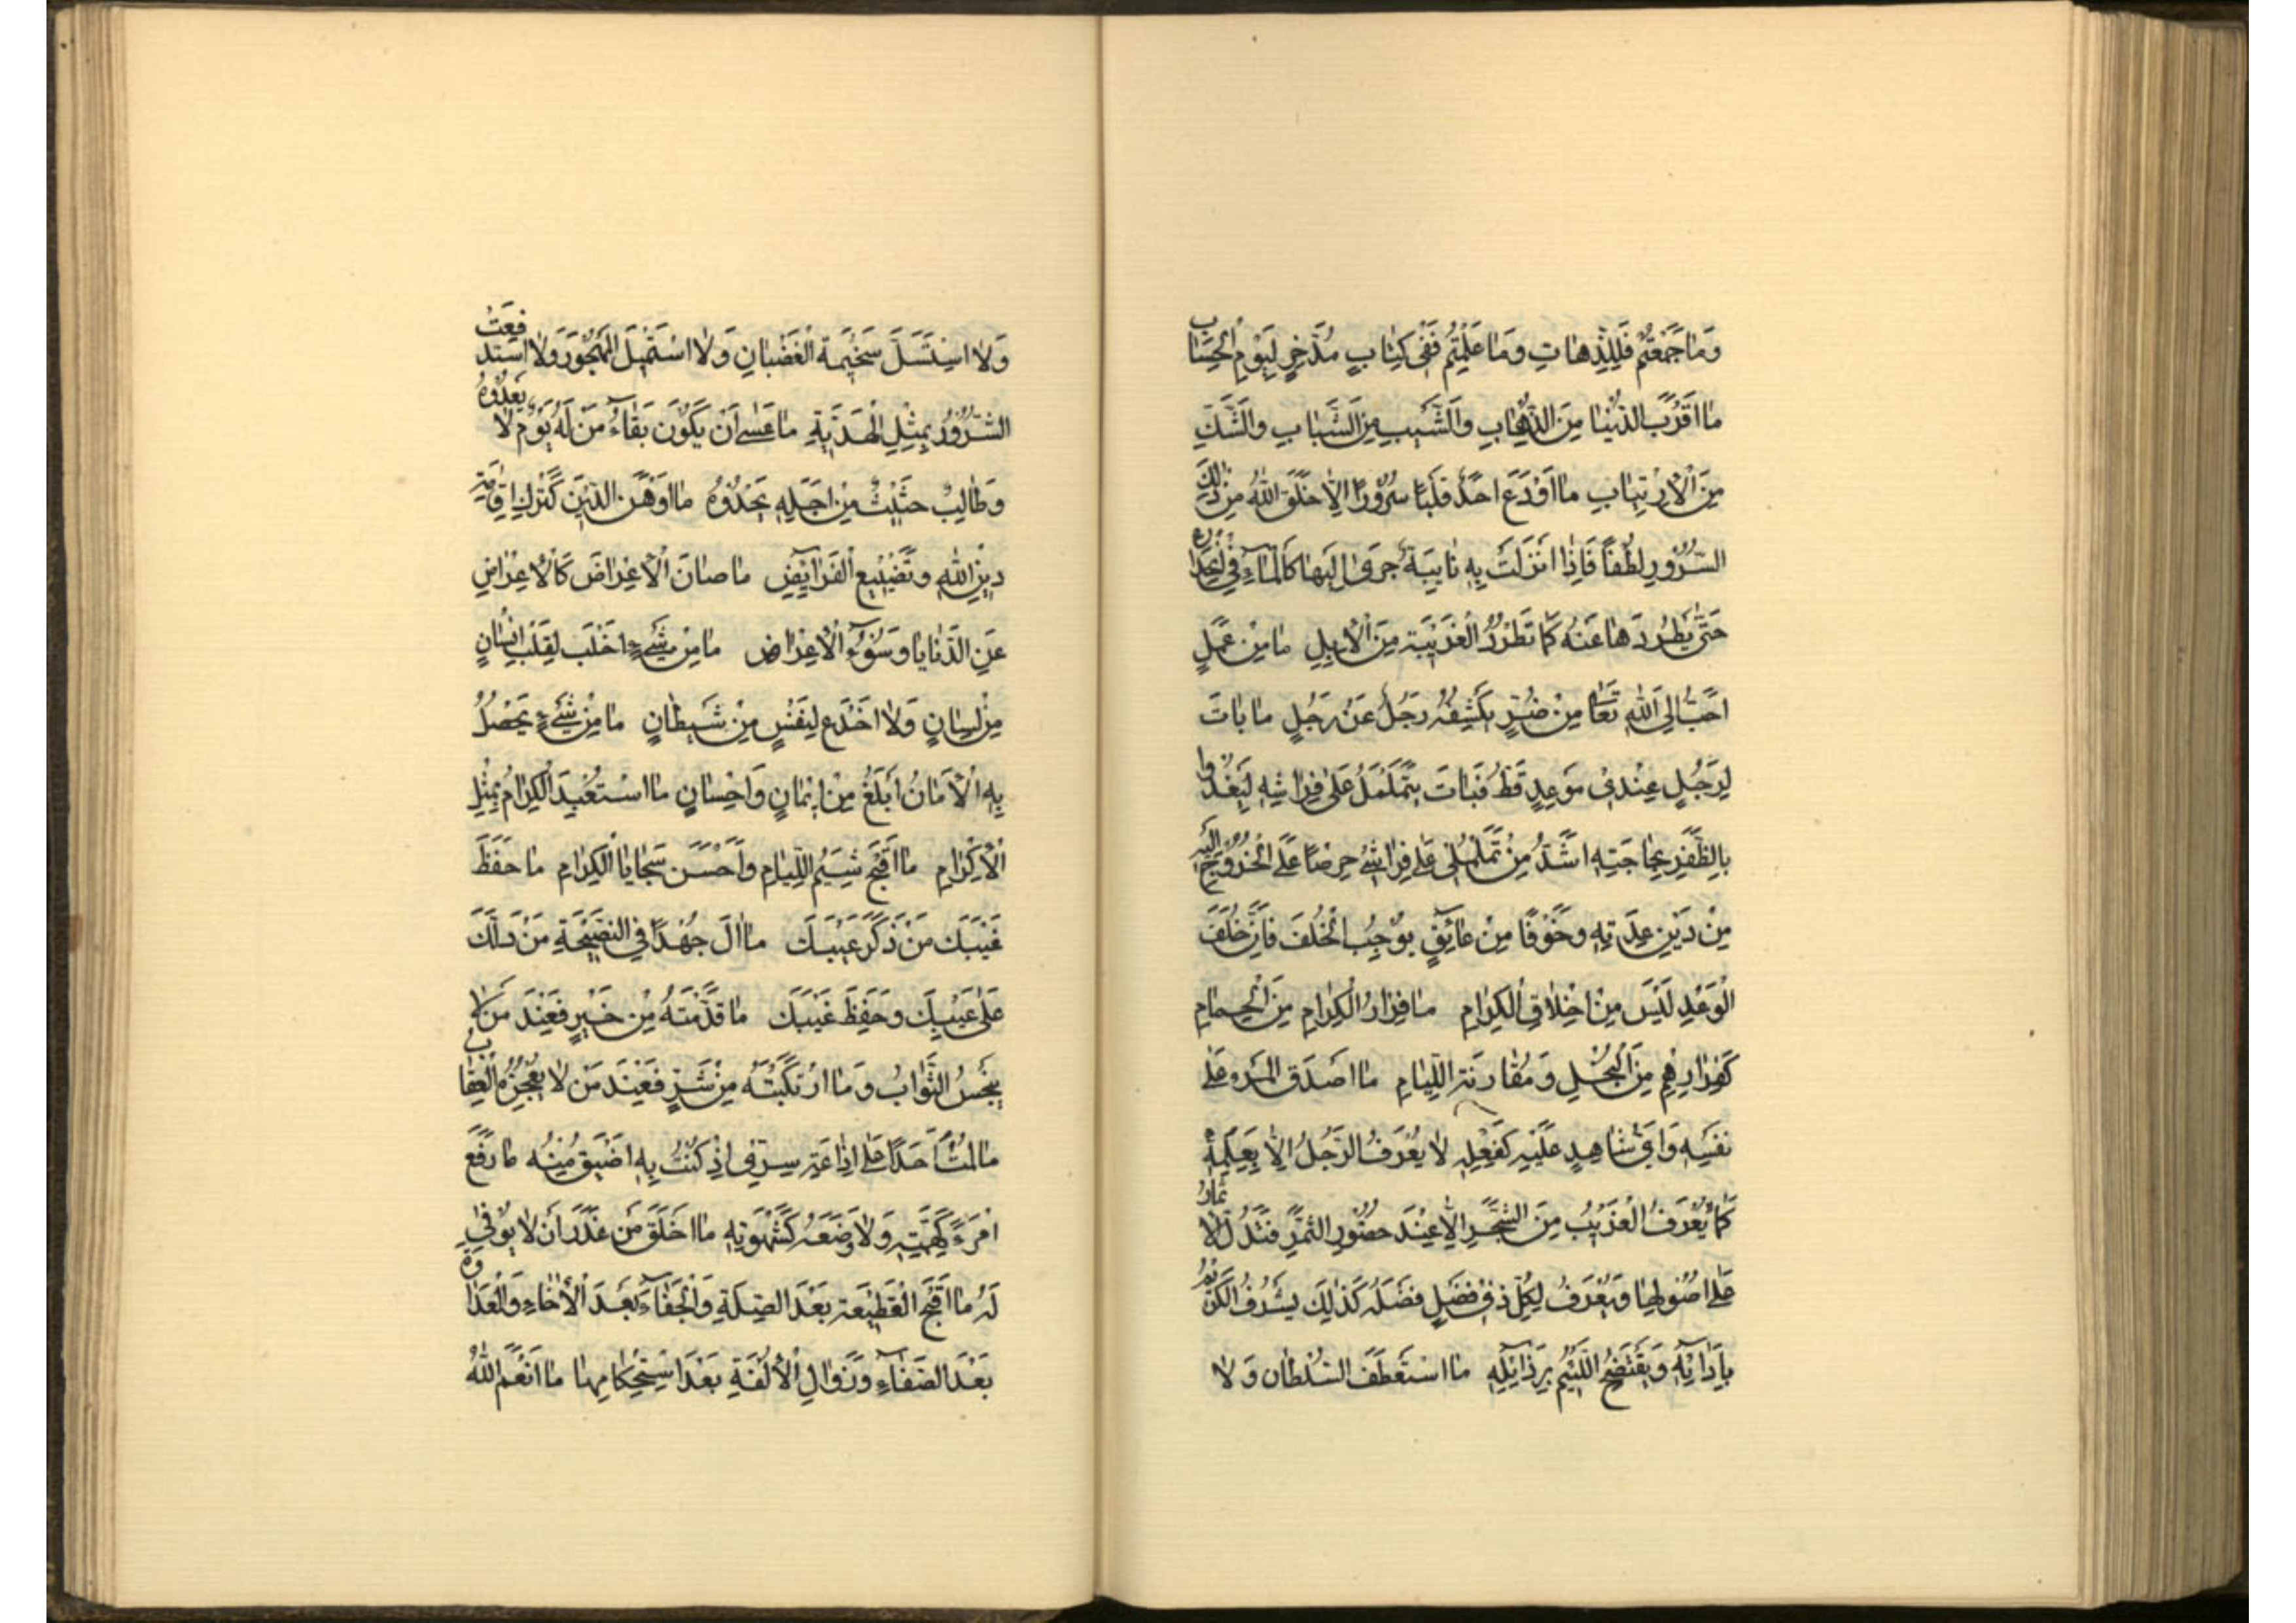 وَمَا جَمَعْتُمْ فَلِلذِّهَابِ وَمَا عَلِمْتُمْ فَفِي كِتَابٍ مُدَّخَرٍ لِيَوْمِ الْحِسَابِ
مَا اَقْرَبَ الدُّنْيَا مِنَ الذِّهَابِ وَالشَّيْبِ مِنَ الشَّبَابِ وَالشَّكِّ
مِنَ الْاِرْتِيَابِ مَا اَوْدَعَ اَحَدٌ قَلْبًا سُرُورًا اِلَّا خَلَقَ اللّٰهُ مِنْ ذٰلِكَ
السُّرُورِ لُطْفًا فَاِذَا نَزَلَتْ بِهِ نَايِبَةٌ جَرَى اِلَيْهَا كَالْمَاءِ فِي انْحِدَارِهِ
حَتّٰى يَطْرُدَهَا عَنْهُ كَمَا تُطْرَدُ الْغَرِيبَةُ مِنَ الْاِبِلِ مَا مِنْ عَمَلٍ
اَحَبُّ اِلَى اللّٰهِ تَعَالٰى مِنْ ضُرٍّ يَكْشِفُهُ رَجُلٌ عَنْ رَجُلٍ مَا بَاتَ
لِرَجُلٍ عِنْدِي مَوْعِدٌ قَطُّ فَبَاتَ يَتَمَلْمَلُ عَلٰى فِرَاشِهِ لِيَغْدُوَ
بِالظَّفَرِ بِحَاجَتِهِ اَشَدَّ مِنْ تَمَلْمُلِي عَلٰى فِرَاشِي حِرْصًا عَلَى الْخُرُوجِ اِلَيْهِ
مِنْ دَيْنِ عِدَتِهِ وَخَوْفًا مِنْ عَائِقٍ يُوجِبُ الْخُلْفَ فَاِنَّ خُلْفَ
الْوَعْدِ لَيْسَ مِنْ اَخْلَاقِ الْكِرَامِ مَا فِرَارُ الْكِرَامِ مِنَ الْحِمَامِ
كَفِرَارِهِمْ مِنَ الْبُخْلِ وَمُقَارَنَةِ اللِّيَامِ مَا اَصْدَقَ الْمَرْءَ عَلٰى
نَفْسِهِ وَاَيُّ شَاهِدٍ عَلَيْهِ كَفِعْلِهِ لَا يُعْرَفُ الرَّجُلُ اِلَّا بِعِلْمِهِ
كَمَا يُعْرَفُ الْغَرِيبُ مِنَ الشَّجَرِ اِلَّا عِنْدَ حُضُورِ الثَّمَرِ فَتَدُلُّ الْاَثْمَارُ
عَلٰى اُصُولِهَا وَيُعْرَفُ لِكُلِّ ذِي فَضْلٍ فَضْلُهُ كَذٰلِكَ يَشْرُفُ الْكَرِيمُ
بِآدَابِهِ وَيَفْتَضِحُ اللَّئِيمُ بِرَذَائِلِهِ مَا اسْتُعْطِفَ السُّلْطَانُ وَلَا
وَلَا اسْتُسِلَّ سَخِيمَةُ الْغَضْبَانِ وَلَا اسْتُمِيلَ الْمَهْجُورُ وَلَا اسْتُدْفِعَتِ
الشُّرُورُ بِمِثْلِ الْهَدِيَّةِ مَا عَسٰى اَنْ يَكُونَ بَقَاءُ مَنْ لَهُ يَوْمٌ لَا يَعْدُوهُ
وَطَالِبٌ حَثِيثٌ مِنْ اَجَلِهِ يَحْدُوهُ مَا اَوْهَنَ الدِّينَ كَتَرْكِ اِقَامَةِ
دِينِ اللّٰهِ وَتَضْيِيعِ الْفَرَايِضِ مَا صَانَ الْاَعْرَاضَ كَالْاِعْرَاضِ
عَنِ الدَّنَايَا وَسُوءِ الْاَعْرَاضِ مَا مِنْ شَيْءٍ اَخْلَبَ لِقَلْبِ اِنْسَانٍ
مِنْ لِسَانٍ وَلَا اَخْدَعَ لِنَفْسٍ مِنْ شَيْطَانٍ مَا مِنْ شَيْءٍ يَحْصُلُ
بِهِ الْاَمَانُ اَبْلَغُ مِنْ اِيمَانٍ وَاِحْسَانٍ مَا اسْتُعْبِدَ الْكِرَامُ بِمِثْلِ
الْاِكْرَامِ مَا اَقْبَحَ شِيَمَ اللِّيَامِ وَاَحْسَنَ سَجَايَا الْكِرَامِ مَا حَفِظَ
غَيْبَكَ مَنْ ذَكَرَ عَيْبَكَ مَا اَلَ جُهْدًا فِي النَّصِيحَةِ مَنْ دَلَّكَ
عَلٰى عَيْبِكَ وَحَفِظَ غَيْبَكَ مَا قَدَّمْتَهُ مِنْ خَيْرٍ فَعِنْدَ مَنْ لَا
يَبْخَسُ الثَّوَابَ وَمَا ارْتَكَبْتَهُ مِنْ شَرٍّ فَعِنْدَ مَنْ لَا يُعْجِزُهُ الْعِقَابُ
مَا لُمْتُ اَحَدًا عَلٰى اِذَاعَةِ سِرِّي اِذْ كُنْتُ بِهِ اَضْيَقَ مِنْهُ مَا رَفَعَ
امْرَءً كَهِمَّتِهِ وَلَا وَضَعَهُ كَشَهْوَتِهِ مَا اَخْلَقَ مَنْ غَدَرَ اَنْ لَا يُوفٰى
لَهُ مَا اَقْبَحَ الْقَطِيعَةَ بَعْدَ الصِّلَةِ وَالْجَفَاءَ بَعْدَ الْاِخَاءِ وَالْعَدَاوَةَ
بَعْدَ الصَّفَاءِ وَزَوَالِ الْاُلْفَةِ بَعْدَ اسْتِحْكَامِهَا مَا اَنْعَمَ اللّٰهُ